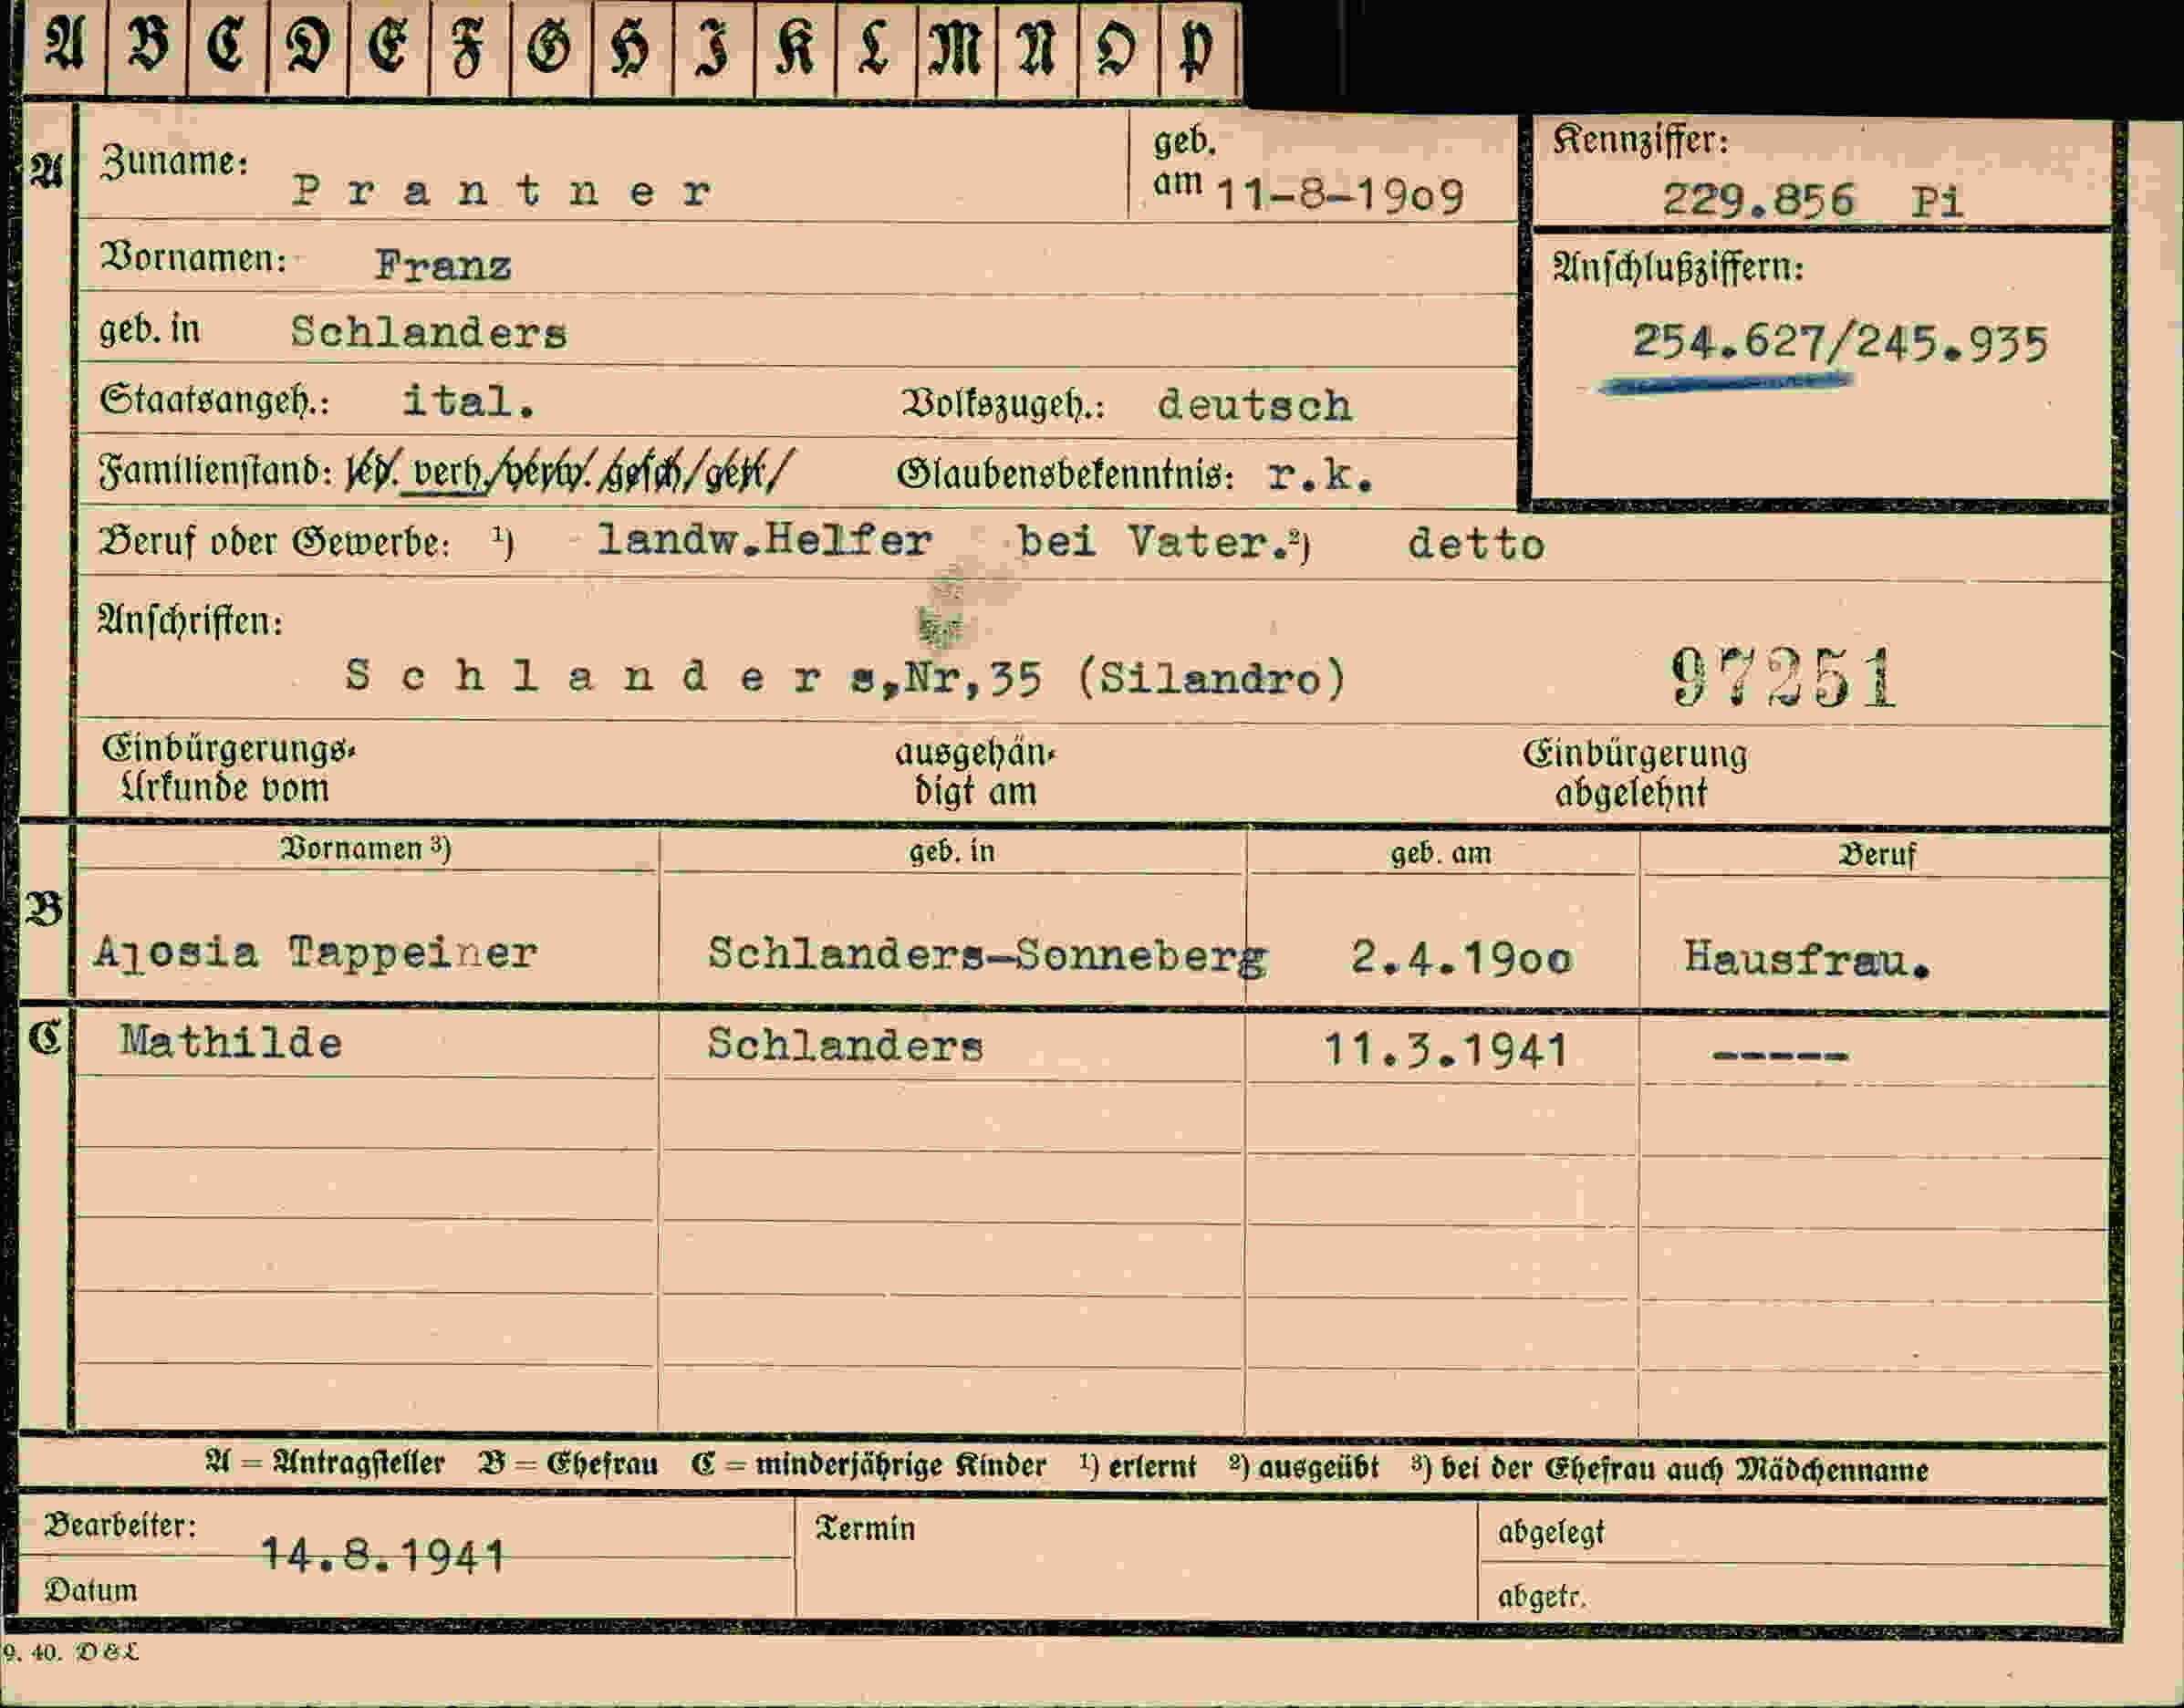 A B C D E F G H I K L M N O P
A
Zuname: Prantner
geb. am 11-8-1909
Kennziffer: 229.856 Pi
Vornamen: Franz
Anschlußziffern:
geb. in Schlanders
254.627/245.935
Staatsangeh.: ital. Volkszugeh.: deutsch
Familienstand: led. verh./verw./gesch/getr/ Glaubensbekenntnis: r.k.
Beruf oder Gewerbe: ¹) landw.Helfer bei Vater.²) detto
Anschriften:
Schlanders,Nr,35 (Silandro) 97251
Einbürgerungs-
Urkunde vom
ausgehän-
digt am
Einbürgerung
abgelehnt
B
Vornamen ³) geb. in geb. am Beruf
Alosia Tappeiner Schlanders-Sonneberg 2.4.1900 Hausfrau.
C Mathilde Schlanders 11.3.1941 -----
A = Antragsteller B = Ehefrau C = minderjährige Kinder ¹) erlernt ²) ausgeübt ³) bei der Ehefrau auch Mädchenname
Bearbeiter: 14.8.1941
Datum
Termin
abgelegt
abgetr.
9. 40. D & L